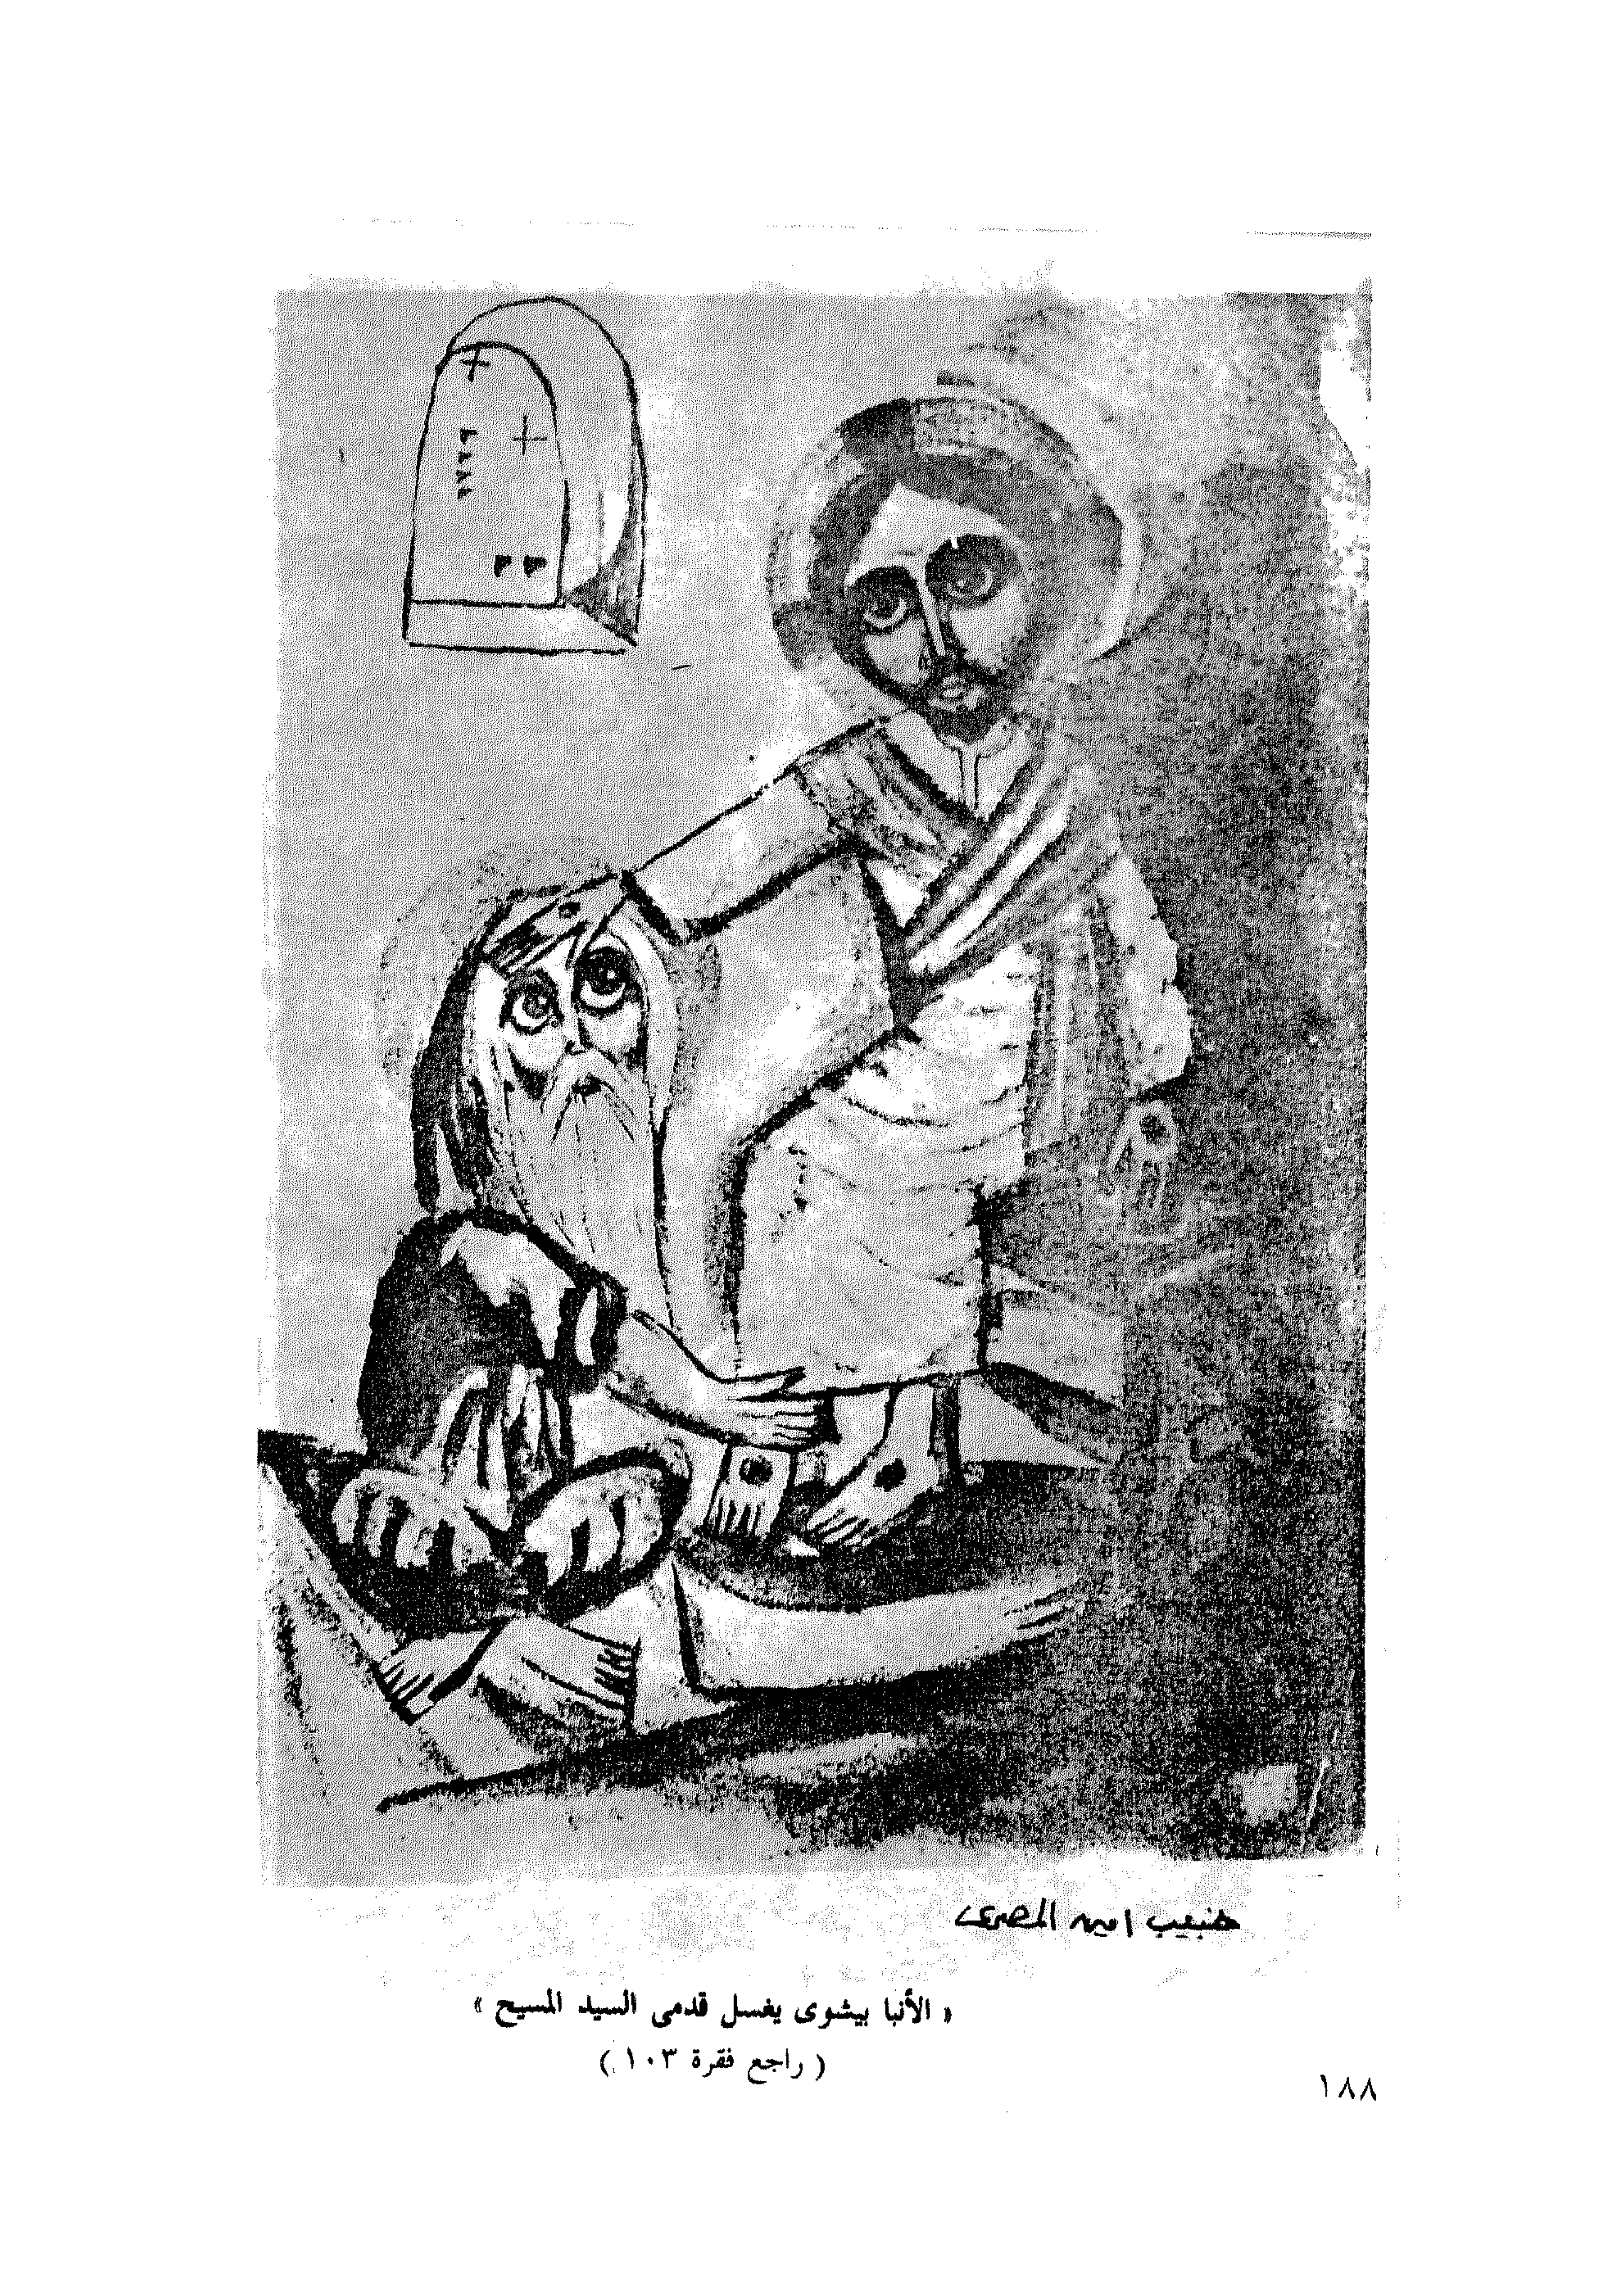 حبيب امين المصرى
« الأنبا بيشوى يغسل قدمى السيد المسيح »
( راجع فقرة ١٠٣ )
١٨٨